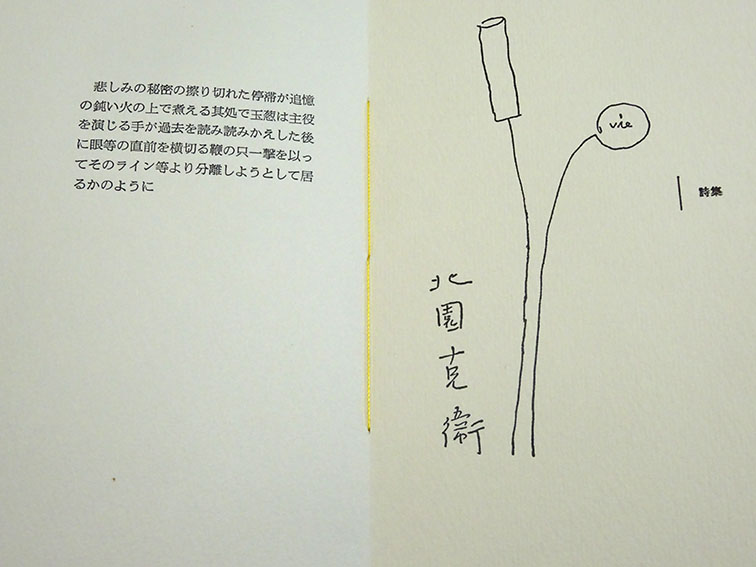 悲しみの秘密の擦り切れた停滞が追憶
の鈍い火の上で煮える其処で玉葱は主役
を演じる手が過去を読み読みかえした後
に眼等の直前を横切る鞭の只一撃を以っ
てそのライン等より分離しようとして居
るかのように
vie
詩集
北園克衛